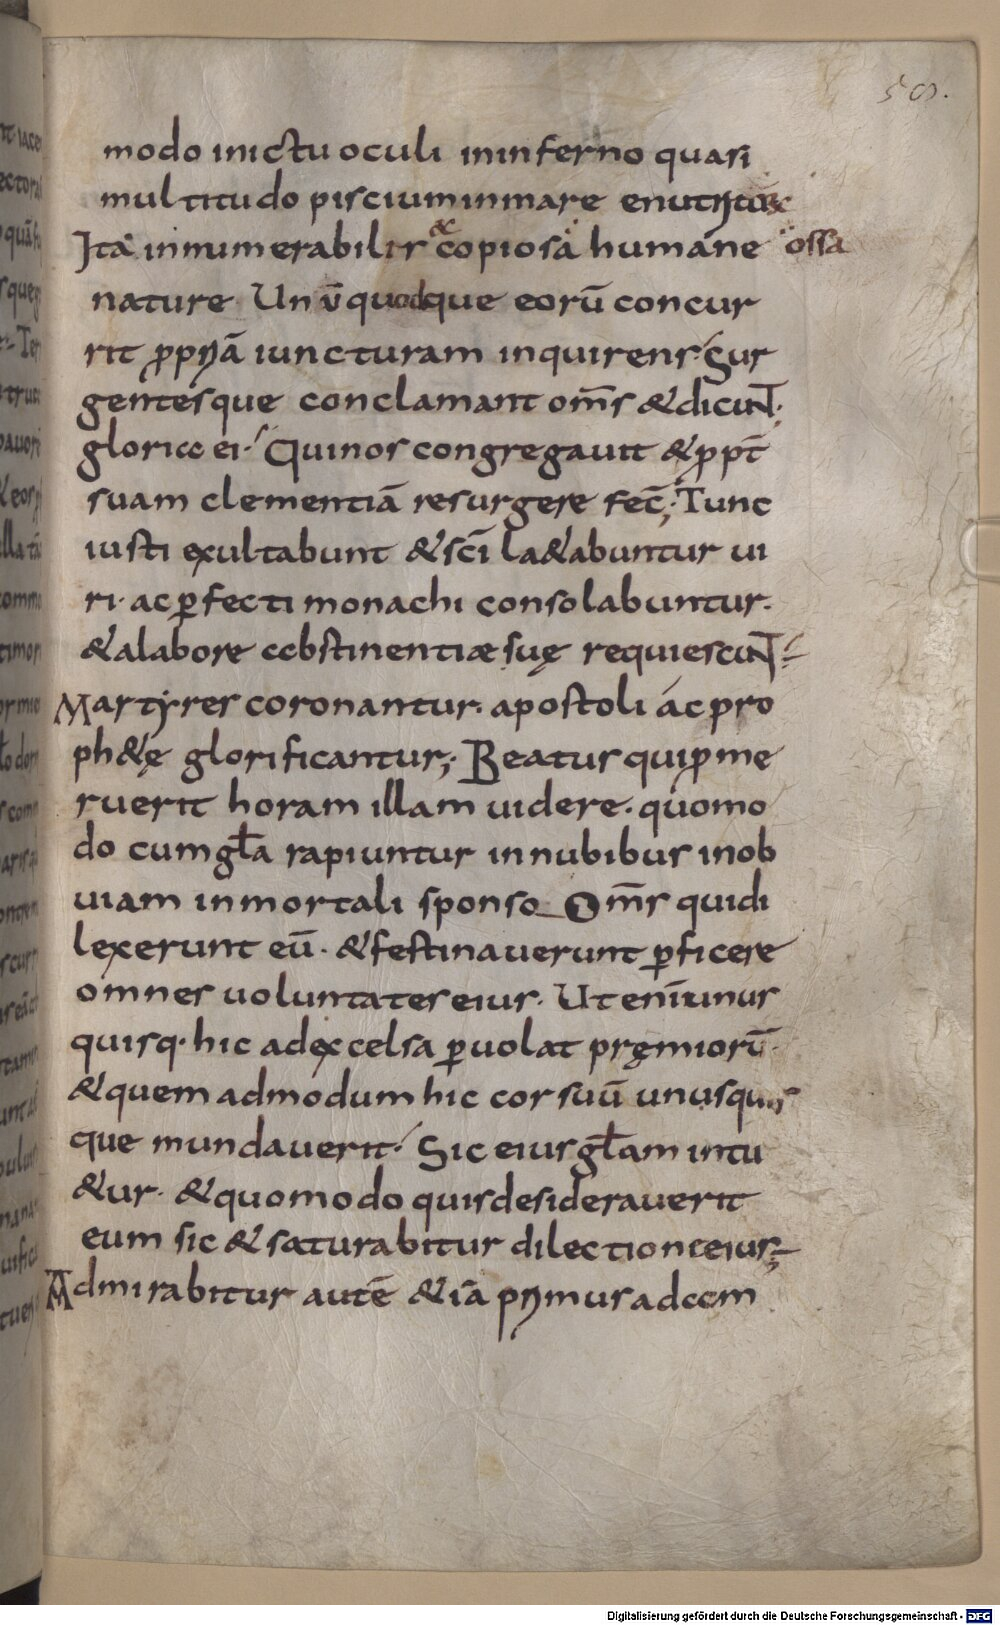 50.
modo inictu oculi ininferno quasi
multitudo pisciuminmare
Ita innumerabilis ac copiosa humane ossa
nature Un uquodque eorū concur
rit ꝓpriā iuncturam inquirens. Sur
gentesque conclamant om̄s &dicuNT;
gloria ei. Qui nos congregauit &ꝓpt̄
suam clementiā resurgere fec̄; Tunc
iusti exultabunt &sc̄i la&abuntur ui
ri. ac ꝑfecti monachi consolabuntur.
&alabore abstinentiæ suę requiescuNT.
Martyres coronantur. apostoli ac pro
ph&ę glorificantur; Beatus quiꝓmę
ruerit horam illam uidere. quomo
do cumgła rapiuntur innubibus inob
uiam inmortali sponso Om̄s quidi
lexerunt eū. &festinauerunt ꝑficere
omnes uoluntates eius. Ut enīunus
quisq. hic adexcelsa ꝑuolat pręmiorū.
&quem admodum hic cor suū unusquis
que mundauerit. Sic eius głam intu
&ur. &quomodo quisdesiderauerit
eum sic & saturabitur dilectione eius;
Admirabitur autē & iā primus adam
Digitalisierung gefördert durch die Deutsche Forschungsgemeinschaft - DFG